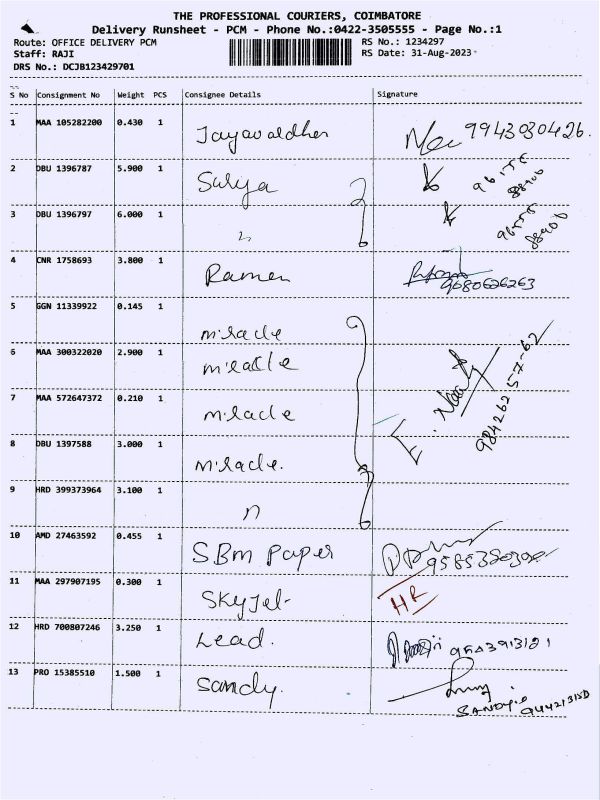 THE PROFESSIONAL COURIERS, COIMBATORE
Delivery Runsheet - PCM - Phone No.:0422-3505555 - Page No.:1
Route: OFFICE DELIVERY PCM RS No.: 1234297
Staff: RAJI RS Date: 31-Aug-2023
DRS No.: DCJB123429701
S No Consignment No Weight PCS Consignee Details Signature
1 MAA 105282200 0.430 1 9943030426.
2 DBU 1396787 5.900 1 Surya
3 DBU 1396797 6.000 1 "
4 CNR 1758693 3.800 1 Ramen 9680626263
5 GGN 11339922 0.145 1 miracle
6 MAA 300322020 2.900 1 miracle
7 MAA 572647372 0.210 1 miracle 98426257-62
8 DBU 1397588 3.000 1 miracle.
9 HRD 399373964 3.100 1 "
10 AMD 27463592 0.455 1 SBM Paper
11 MAA 297907195 0.300 1 SkyJet HR
12 HRD 700807246 3.250 1 Lead.
13 PRO 15385510 1.500 1 Sandy.